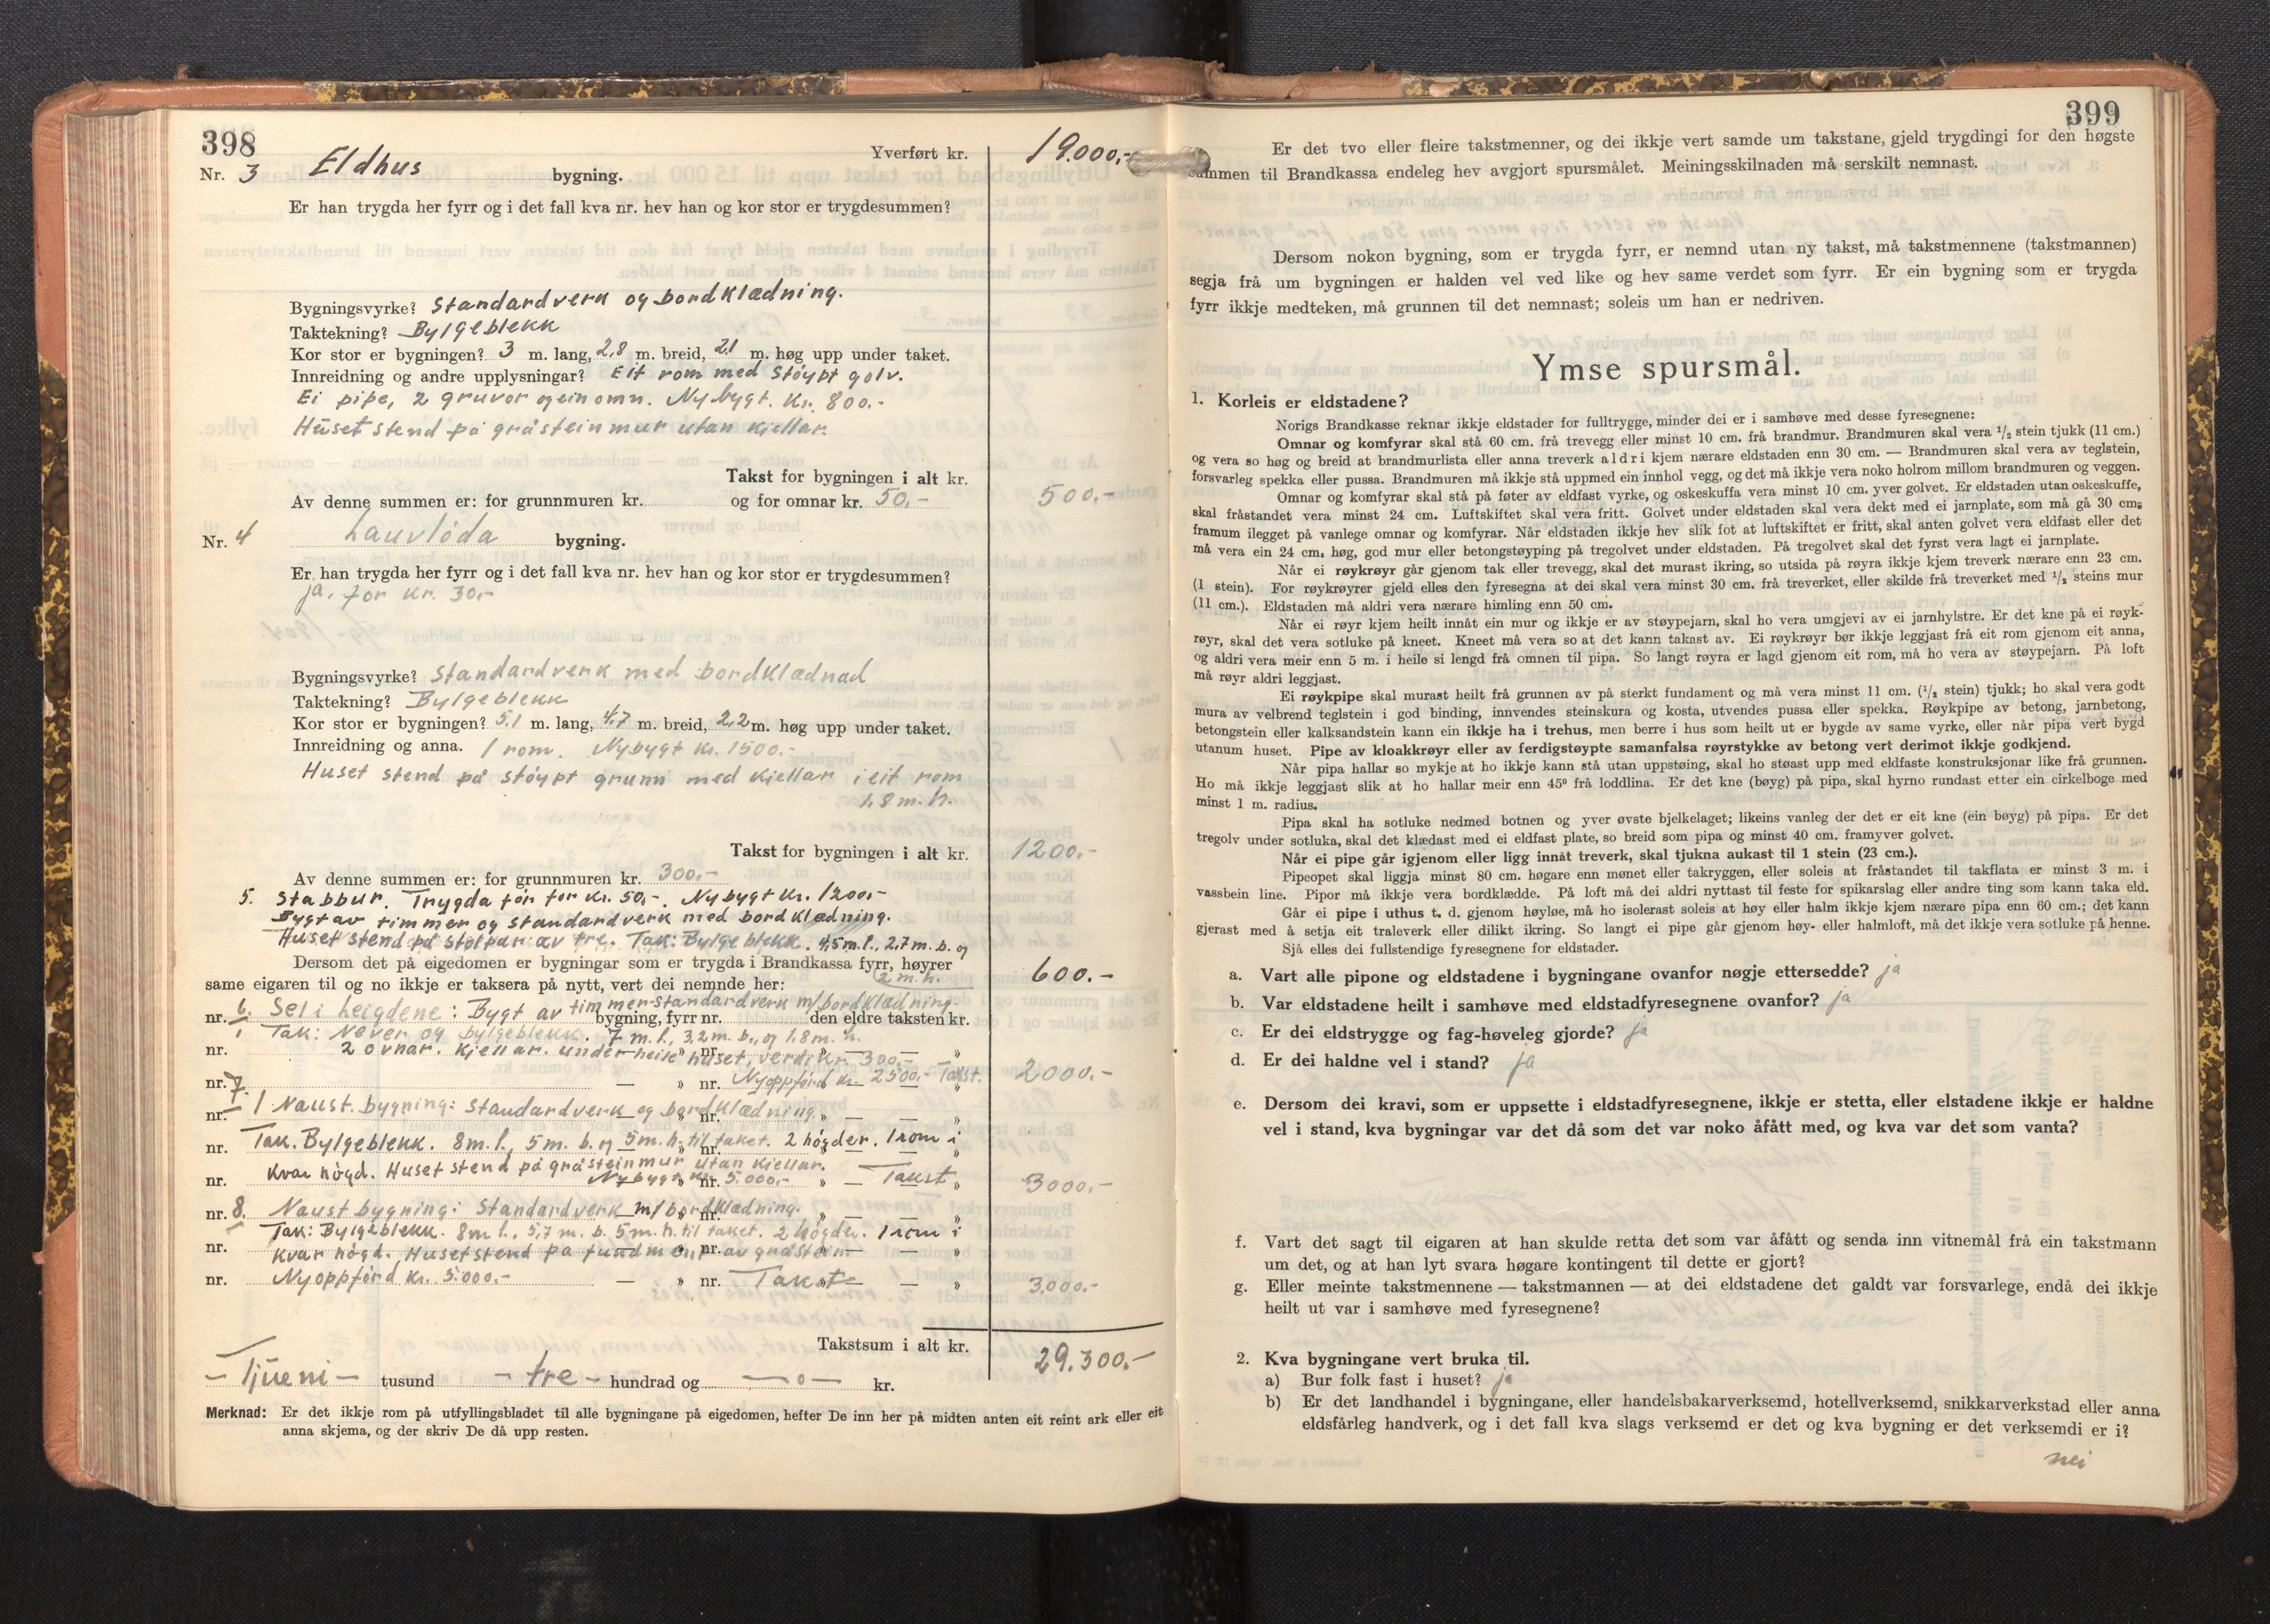 398
Yverført kr. 19.000,-
Nr. 3 Eldhus bygning.
Er han trygda her fyrr og i det fall kva nr. hev han og kor stor er trygdesummen?
Bygningsvyrke? Standardverk og bordklædning.
Taktekning? Bylgeblekk
Kor stor er bygningen? 3 m. lang, 2,8 m. breid, 2,1 m. høg upp under taket.
Innreidning og andre upplysningar? Eit rom med støypt golv.
Ei pipe, 2 gruvor og ein omn. Nybygt. Kr. 800.-
Huset stend på gråsteinmur utan kjellar.
Takst for bygningen i alt kr.
Av denne summen er: for grunnmuren kr. og for omnar kr. 50,- 500.-
Nr. 4 Lauvløda bygning.
Er han trygda her fyrr og i det fall kva nr. hev han og kor stor er trygdesummen?
ja, for kr. 30.-
Bygningsvyrke? Standardverk med bordklædnad
Taktekning? Bylgeblekk
Kor stor er bygningen? 5,1 m. lang, 4,7 m. breid, 2,2 m. høg upp under taket.
Innreidning og anna. 1 rom. Nybygt kr. 1500.-
Huset stend på støypt grunn med kjellar i eit rom
1,8 m. h.
Takst for bygningen i alt kr. 1200.-
Av denne summen er: for grunnmuren kr. 300.-
5. Stabbur. Trygda før for kr. 50,-. Nybygt kr. 1200.-
Bygt av timmer og standardverk med bordklædning.
Huset stend på stolpar av tre. Tak: Bylgeblekk. 4,5 m. l., 2,7 m. b. og
Dersom det på eigedomen er bygningar som er trygda i Brandkassa fyrr, høyrer
2 m. h. 600.-
same eigaren til og no ikkje er taksera på nytt, vert dei nemnde her:
nr. 6. Sel i heigdene: Bygt av timmer-standardverk m/bordklædning.
bygning, fyrr nr. den eldre taksten kr.
Tak: Never og bylgeblekk. 7 m. l., 3,2 m. b., og 1,8 m. h.
nr. 2 ovnar. Kjellar under heile huset, verdi kr. 300.-
nr. 7. — » nr. Nyoppførd kr. 2500.- Takst. 2000.-
nr. 1 Naust. bygning: Standardverk og bordklædning.
nr. Tak. Bylgeblekk. 8 m. l., 5 m. b. og 5 m. h. til taket. 2 høgder. 1 rom i
kvar høgd. Huset stend på gråsteinmur utan kjellar.
nr. Nybygt kr. 5.000.- Takst 3000.-
nr. 8. Naust bygning: Standardverk m/bordklædning.
Tak: Bylgeblekk. 8 m. l., 5,7 m. b. 5 m. h. til taket. 2 høgder. 1 rom i
nr. kvar høgd. Huset stend på fundment av gråstein
nr. Nyoppførd kr. 5.000.- — » nr. Takst — » 3.000.-
Takstsum i alt kr. 29.300.-
— Tjueni — tusund — tre — hundrad og — o — kr.
Merknad: Er det ikkje rom på utfyllingsbladet til alle bygningane på eigedomen, hefter De inn her på midten anten eit reint ark eller eit
anna skjema, og der skriv De då upp resten.
399
Er det tvo eller fleire takstmenner, og dei ikkje vert samde um takstane, gjeld trygdingi for den høgste
summen til Brandkassa endeleg hev avgjort spursmålet. Meiningsskilnaden må serskilt nemnast.
Dersom nokon bygning, som er trygda fyrr, er nemnd utan ny takst, må takstmennene (takstmannen)
segja frå um bygningen er halden vel ved like og hev same verdet som fyrr. Er ein bygning som er trygda
fyrr ikkje medteken, må grunnen til det nemnast; soleis um han er nedriven.
Ymse spursmål.
1. Korleis er eldstadene?
Norigs Brandkasse reknar ikkje eldstader for fulltrygge, minder dei er i samhøve med desse fyresegnene:
Omnar og komfyrar skal stå 60 cm. frå trevegg eller minst 10 cm. frå brandmur. Brandmuren skal vera ½ stein tjukk (11 cm.)
og vera so høg og breid at brandmurlista eller anna treverk aldri kjem nærare eldstaden enn 30 cm. — Brandmuren skal vera av teglstein,
forsvarleg spekka eller pussa. Brandmuren må ikkje stå uppmed ein innhol vegg, og det må ikkje vera noko holrom millom brandmuren og veggen.
Omnar og komfyrar skal stå på føter av eldfast vyrke, og oskeskuffa vera minst 10 cm. yver golvet. Er eldstaden utan oskeskuffe,
skal fråstandet vera minst 24 cm. Luftskiftet skal vera fritt. Golvet under eldstaden skal vera dekt med ei jarnplate, som må gå 30 cm.
framum ilegget på vanlege omnar og komfyrar. Når eldstaden ikkje hev slik fot at luftskiftet er fritt, skal anten golvet vera eldfast eller det
må vera ein 24 cm. høg, god mur eller betongstøyping på tregolvet under eldstaden. På tregolvet skal det fyrst vera lagt ei jarnplate.
Når ei røykrøyr går gjenom tak eller trevegg, skal det murast ikring, so utsida på røyra ikkje kjem treverk nærare enn 23 cm.
(1 stein). For røykrøyrer gjeld elles den fyresegna at dei skal vera minst 30 cm. frå treverket, eller skilde frå treverket med ½ steins mur
(11 cm.). Eldstaden må aldri vera nærare himling enn 50 cm.
Når ei røyr kjem heilt innåt ein mur og ikkje er av støypejarn, skal ho vera umgjevi av ei jarnhylstre. Er det kne på ei røyk-
røyr, skal det vera sotluke på kneet. Kneet må vera so at det kann takast av. Ei røykrøyr bør ikkje leggjast frå eit rom gjenom eit anna,
og aldri vera meir enn 5 m. i heile si lengd frå omnen til pipa. So langt røyra er lagd gjenom eit rom, må ho vera av støypejarn. På loft
må røyr aldri leggjast.
Ei røykpipe skal murast heilt frå grunnen av på sterkt fundament og må vera minst 11 cm. (½ stein) tjukk; ho skal vera godt
mura av velbrend teglstein i god binding, innvendes steinskura og kosta, utvendes pussa eller spekka. Røykpipe av betong, jarnbetong,
betongstein eller kalksandstein kann ein ikkje ha i trehus, men berre i hus som heilt ut er bygde av same vyrke, eller når pipa vert bygd
utanum huset. Pipe av kloakkrøyr eller av ferdigstøypte samanfalsa røyrstykke av betong vert derimot ikkje godkjend.
Når pipa hallar so mykje at ho ikkje kann stå utan uppstøing, skal ho støast upp med eldfaste konstruksjonar like frå grunnen.
Ho må ikkje leggjast slik at ho hallar meir enn 45° frå loddlina. Er det kne (bøyg) på pipa, skal hyrno rundast etter ein cirkelboge med
minst 1 m. radius.
Pipa skal ha sotluke nedmed botnen og yver øvste bjelkelaget; likeins vanleg der det er eit kne (ein bøyg) på pipa. Er det
tregolv under sotluka, skal det klædast med ei eldfast plate, so breid som pipa og minst 40 cm. framyver golvet.
Når ei pipe går igjenom eller ligg innåt treverk, skal tjukna aukast til 1 stein (23 cm.).
Pipeopet skal liggja minst 80 cm. høgare enn mønet eller takryggen, eller soleis at fråstandet til takflata er minst 3 m. i
vassbein line. Pipor må ikkje vera bordklædde. På loft må dei aldri nyttast til feste for spikarslag eller andre ting som kann taka eld.
Går ei pipe i uthus t. d. gjenom høyløe, må ho isolerast soleis at høy eller halm ikkje kjem nærare pipa enn 60 cm.; det kann
gjerast med å setja eit traleverk eller dilikt ikring. So langt ei pipe går gjenom høy- eller halmloft, må det ikkje vera sotluke på henne.
Sjå elles dei fullstendige fyresegnene for eldstader.
a. Vart alle pipone og eldstadene i bygningane ovanfor nøgje ettersedde? ja
b. Var eldstadene heilt i samhøve med eldstadfyresegnene ovanfor? ja
c. Er dei eldstrygge og fag-høveleg gjorde? ja
d. Er dei haldne vel i stand? ja
e. Dersom dei kravi, som er uppsette i eldstadfyresegnene, ikkje er stetta, eller elstadene ikkje er haldne
vel i stand, kva bygningar var det då som det var noko åfått med, og kva var det som vanta?
f. Vart det sagt til eigaren at han skulde retta det som var åfått og senda inn vitnemål frå ein takstmann
um det, og at han lyt svara høgare kontingent til dette er gjort?
g. Eller meinte takstmennene — takstmannen — at dei eldstadene det galdt var forsvarlege, endå dei ikkje
heilt ut var i samhøve med fyresegnene?
2. Kva bygningane vert bruka til.
a) Bur folk fast i huset? ja
b) Er det landhandel i bygningane, eller handelsbakarverksemd, hotellverksemd, snikkarverkstad eller anna
eldsfårleg handverk, og i det fall kva slags verksemd er det og kva bygning er det verksemdi er i?
nei